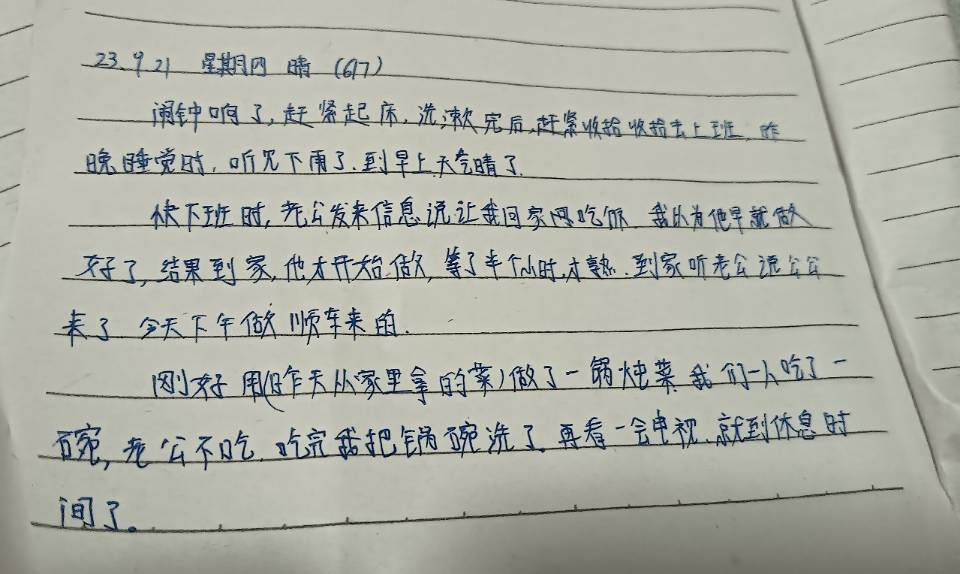 23.9.21 星期四 晴 (617)
闹钟响了,赶紧起床,洗漱完后,赶紧收拾收拾去上班,昨
晚睡觉时,听见下雨了.到早上天气晴了.
快下班时,老公发来信息说让我回家吃饭 我认为他早就做
好了,结果到家,他才开始做,等了半个小时,才熟.到家听老公说公公
来了 今天下午做顺车来的.
刚好用(昨天从家里拿的菜)做了一锅炖菜 我们一人吃了一
碗,老公不吃.吃完我把锅碗洗了.再看一会电视.就到休息时
间了。